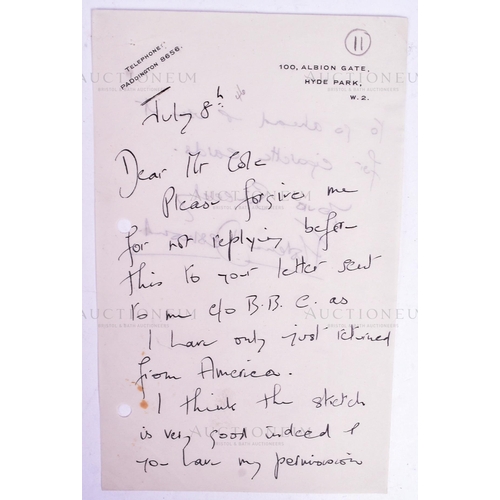 11
TELEPHONE:
PADDINGTON 8656.
100, ALBION GATE,
HYDE PARK,
W.2.
July 8th
Dear Mr Cole
Please forgive me
for not replying before
this to your letter sent
to me c/o B.B.C. as
I have only just returned
from America.
I think the sketch
is very good indeed &
you have my permission
AUCTIONEUM